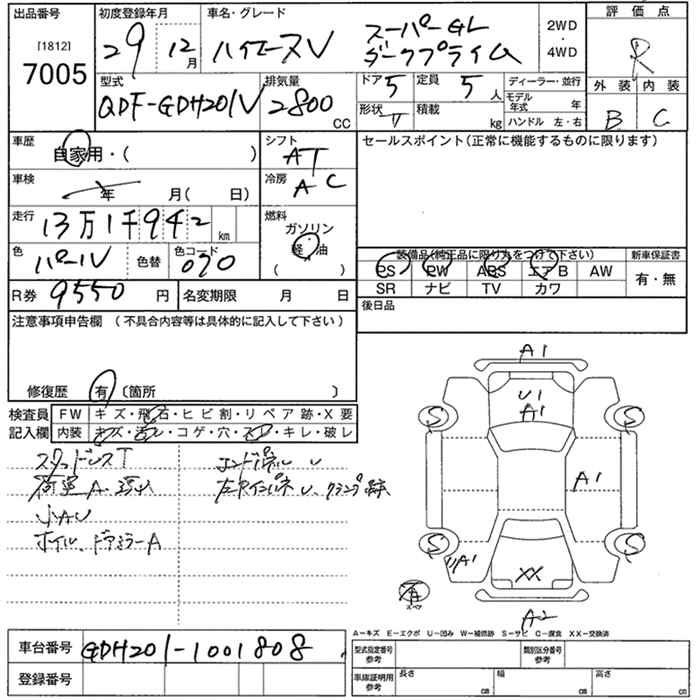 出品番号
[1812]
7005
初度登録年月
29 12月
車名・グレード
ハイエースV スーパーGL
ダークプライム
2WD
・
4WD
評価点
R
外装 内装
B C
型式
QDF-GDH201V
排気量
2800 CC
ドア 5
定員 5 人
形状
積載 kg
ディーラー・並行
モデル年式 年
ハンドル 左・右
車歴
自家用・( )
シフト
AT
セールスポイント(正常に機能するものに限ります)
車検
年 月( 日)
冷房
AC
走行
13万1千942 km
燃料
ガソリン
軽油
( )
色
パールV 色替
色コード
070
装備品(純正品に限り丸をつけて下さい)
PS PW ABS エアB AW
SR ナビ TV カワ
新車保証書
有・無
R券 9550 円
名変期限 月 日
後日品
注意事項申告欄 (不具合内容等は具体的に記入して下さい)
修復歴 有〔箇所 〕
検査員
記入欄
FW キズ・飛石・ヒビ割・リペア跡・X要
内装 キズ・汚レ・コゲ・穴・スレ・キレ・破レ
スタッドレスT
小AU
ホイル、ドアミラーA
エンドパネル U
左リインパネU、クランプ跡
A1
U1
A1
S S
A1
S S
A1
XX
有
スペア
A2
A-キズ E-エクボ U-凹み W-補修跡 S-サビ C-腐食 XX-交換済
車台番号 GDH201-1001808
登録番号
型式指定番号
参考
類別区分番号
参考
車庫証明用
参考
長さ cm
幅 cm
高さ cm